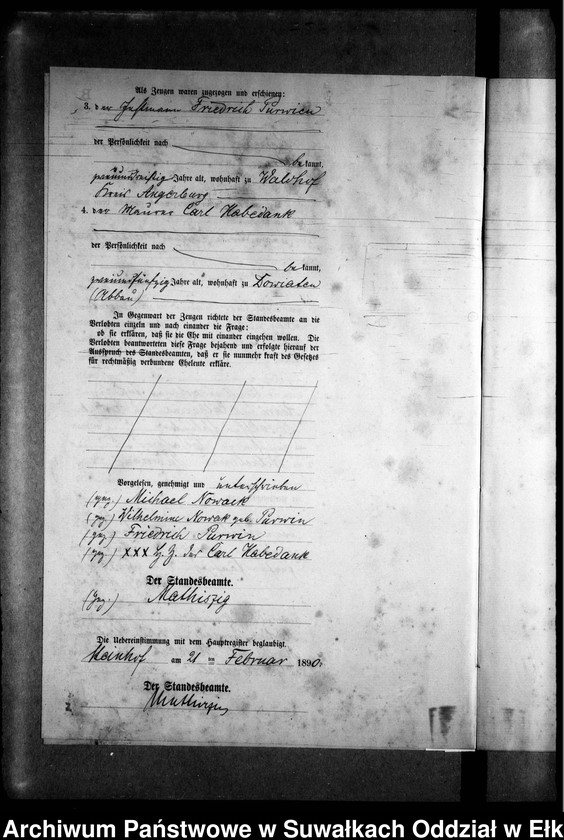 Als Zeugen waren zugezogen und erschienen:
3. der Instmann Friedrich Purwien
der Persönlichkeit nach
bekannt,
Jahre alt, wohnhaft zu Waldhof
Kreis Angerburg
4. der Maurer Carl Habedank
der Persönlichkeit nach
bekannt,
zweiundfünfzig Jahre alt, wohnhaft zu Dowiaten
(Abbau)
In Gegenwart der Zeugen richtete der Standesbeamte an die
Verlobten einzeln und nach einander die Frage:
ob sie erklären, daß sie die Ehe mit einander eingehen wollen. Die
Verlobten beantworteten diese Frage bejahend und erfolgte hierauf der
Ausspruch des Standesbeamten, daß er sie nunmehr kraft des Gesetzes
für rechtmäßig verbundene Eheleute erkläre.
Vorgelesen, genehmigt und unterschrieben
(gez.) Michael Nowack
(gez.) Wilhelmine Nowak geb. Purwin
(gez.) Friedrich Purwin
(gez.) XXX H. Z. des Carl Habedank
Der Standesbeamte.
(gez.) Mathiszig
Die Uebereinstimmung mit dem Hauptregister beglaubigt.
Steinhof am 21 ten Februar 1890.
Der Standesbeamte.
Mathiszig
Archiwum Państwowe w Suwałkach Oddział w Ełk